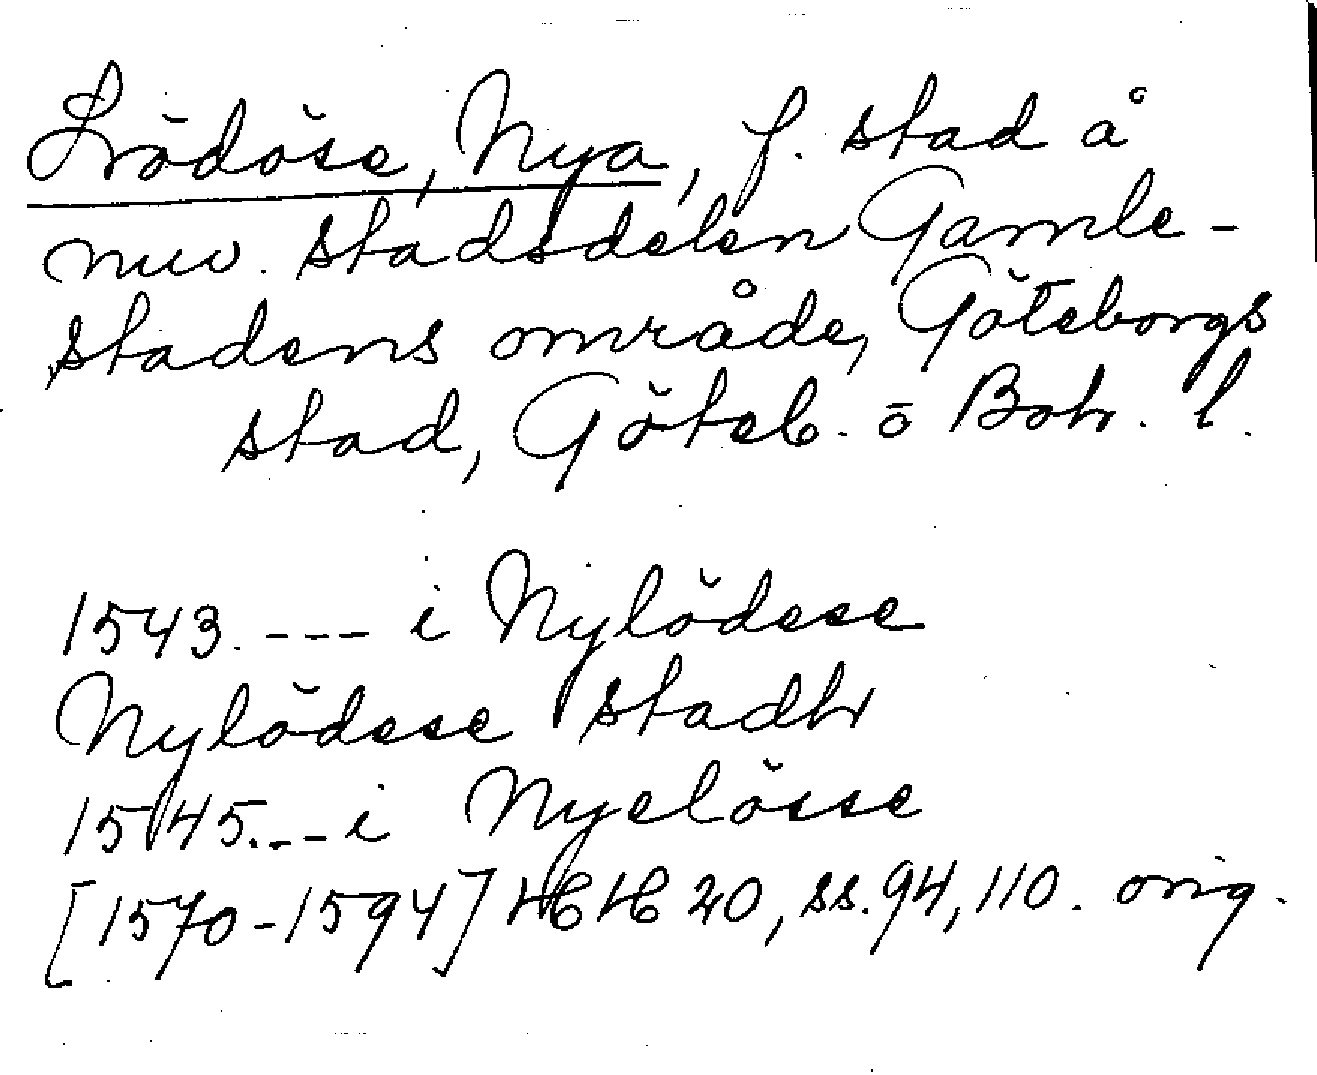 Lödöse, Nya, f. stad å
nuv. stadsdelen Gamle-
stadens område, Göteborgs
stad, Göteb. o Boh. l.
1543. --- i Nylödese
Nylödese stadh
1545. -- i Nyelösse
[1570-1594] HH 20, ss. 94, 110. orig.